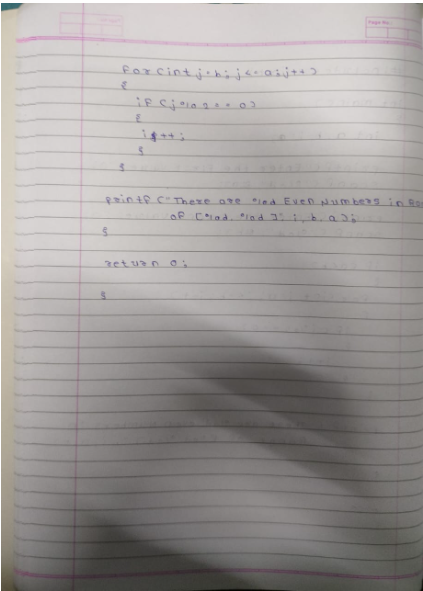 for (int j=b; j<=a; j++)
{
if (j%2==0)
{
i++;
}
}
printf ("There are %d Even Numbers in
of [%d, %d]", i, b, a);
}
return 0;
}